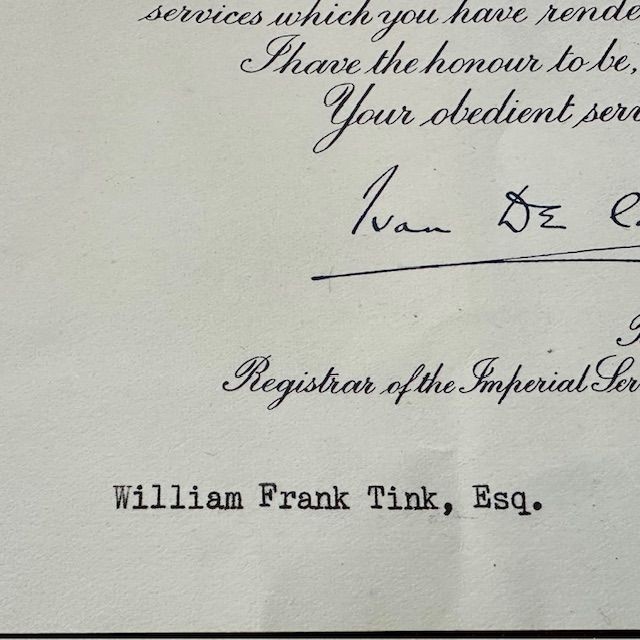 services which you have
I have the honour to be,
Your obedient
Ivan De
Registrar of the Imperial
William Frank Tink, Esq.